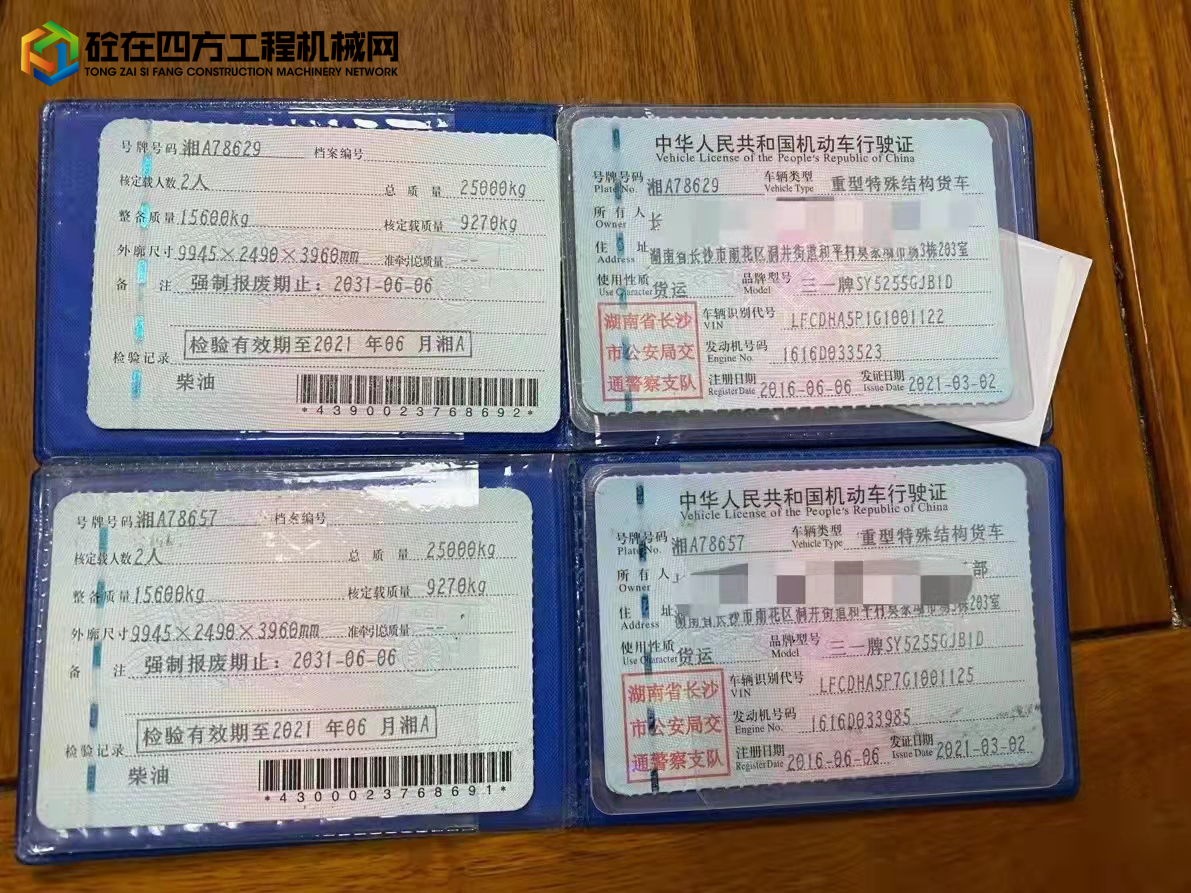 砼在四方工程机械网
TONG ZAI SI FANG CONSTRUCTION MACHINERY NETWORK
号牌号码 湘A78629 档案编号
核定载人数 2人 总质量 25000kg
整备质量 15600kg 核定载质量 9270kg
外廓尺寸 9945×2490×3960mm 准牵引总质量 --
备注 强制报废期止：2031-06-06
检验记录 检验有效期至2021 年06 月湘A
柴油
*4390023768692*
中华人民共和国机动车行驶证
Vehicle License of the People's Republic of China
号牌号码 湘A78629 车辆类型 重型特殊结构货车
Plate No. Vehicle Type
所有人 长
Owner
住址 湖南省长沙市雨花区洞井街道和平村吴家 3栋203室
Address
使用性质 货运 品牌型号 三一牌SY5255GJB1D
Use Character Model
湖南省长沙
市公安局交
通警察支队
车辆识别代号 LFCDHA5P1G1001122
VIN
发动机号码 1616D033523
Engine No.
注册日期 2016-06-06 发证日期 2021-03-02
Register Date Issue Date
号牌号码 湘A78657 档案编号
核定载人数 2人 总质量 25000kg
整备质量 15600kg 核定载质量 9270kg
外廓尺寸 9945×2490×3960mm 准牵引总质量 --
备注 强制报废期止：2031-06-06
检验记录 检验有效期至2021 年06 月湘A
柴油
*4300023768691*
中华人民共和国机动车行驶证
Vehicle License of the People's Republic of China
号牌号码 湘A78657 车辆类型 重型特殊结构货车
Plate No. Vehicle Type
所有人 部
Owner
住址 湖南省长沙市雨花区洞井街道和平村吴家 3栋203室
Address
使用性质 货运 品牌型号 三一牌SY5255GJB1D
Use Character Model
湖南省长沙
市公安局交
通警察支队
车辆识别代号 LFCDHA5P7G1001125
VIN
发动机号码 1616D033985
Engine No.
注册日期 2016-06-06 发证日期 2021-03-02
Register Date Issue Date